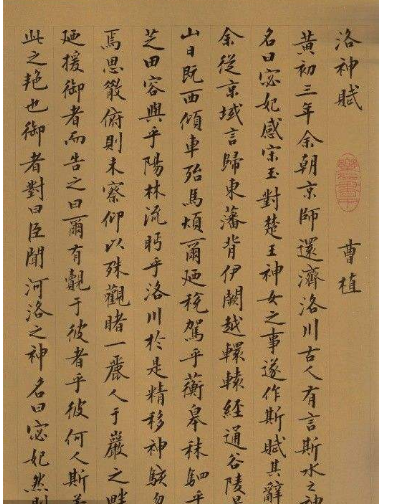 洛神賦 曹植
黃初三年余朝京師還濟洛川古人有言斯水之神
名曰宓妃感宋玉對楚王神女之事遂作斯賦其辭
余從京域言歸東藩背伊闕越轘轅經通谷陵景
山日既西傾車殆馬煩爾廼稅駕乎蘅皋秣駟乎
芝田容與乎陽林流眄乎洛川於是精移神駭忽
焉思散俯則未察仰以殊觀睹一麗人于巖之畔
廼援御者而告之曰爾有覿于彼者乎彼何人斯若
此之艷也御者對曰臣聞河洛之神名曰宓妃然則